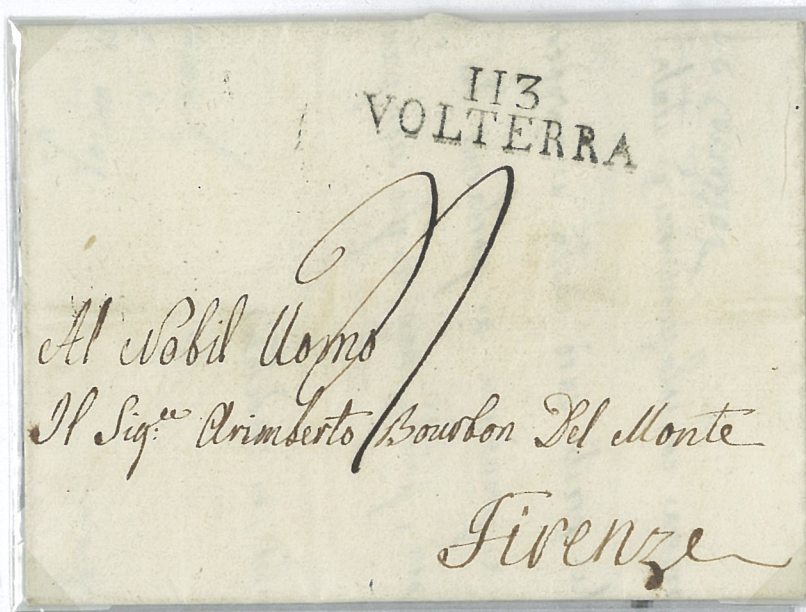 113
VOLTERRA
Al Nobil Uomo
Il Sig.re Arimberto Bourbon Del Monte
Firenze